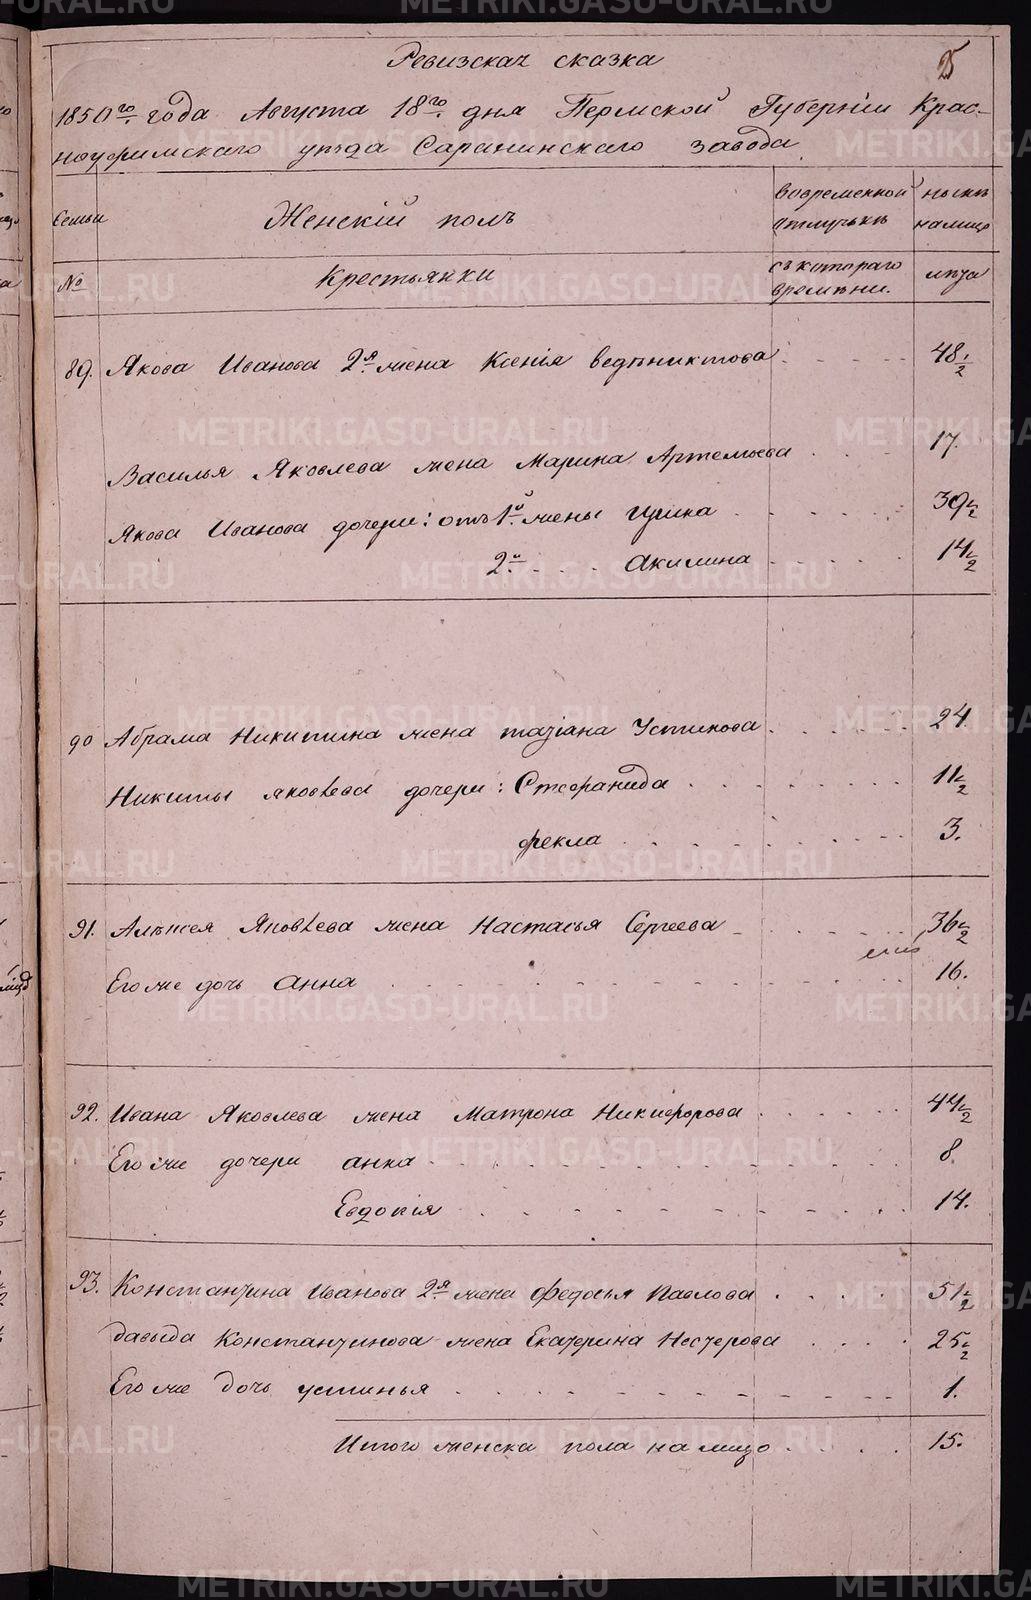 Ревизская сказка
25
1850го. года Августа 18го. дня Пермской Губернiи Крас-
ноуфимскаго уѣзда Саранинскаго завода
Семьи
Женскiй полъ
Вовременной отлучькѣ
нынѣ налицо
№
Крестьянки
съ котораго времѣни.
лѣта
89. Якова Иванова 2я. жена Ксенiя ведѣниктова 48 1/2
Василья Яковлева жена Марина Артемьева 17.
Якова Иванова дочери: отъ 1й. жены 39 1/2
2й. Акилина 14 1/2
90 Абрама Никитина жена татiана Устинова 24.
Никиты яковлева дочери: Стефанида 11 1/2
фекла 3.
91. Алѣксея Яковлева жена Настасья Сергеева 36 1/2
Его же дочь Анна 16.
92. Ивана Яковлева жена Матрона Никифорова 44 1/2
Его же дочери анна 8.
Евдокiя 14.
93. Константина Иванова 2я. жена федосья Павлова 51 1/2
давыда Константинова жена Екатерина Нестерова 25 1/2
Его же дочь устинья 1.
Итого женска пола на лицо 15.
METRIKI.GASO-URAL.RU